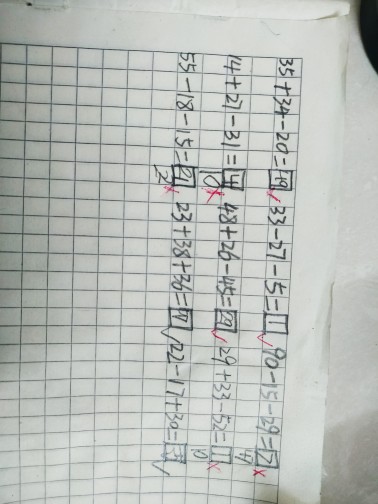 35+34-20=49 ✓ 33-27-5=1 ✓ 90-15-29= ×
14+27-31=4 × 48+26-45=29 ✓ 29+33-52=11 ×
10 10
55-18-15=21 × 23+38+36=97 ✓ 22-17+30=35 ✓